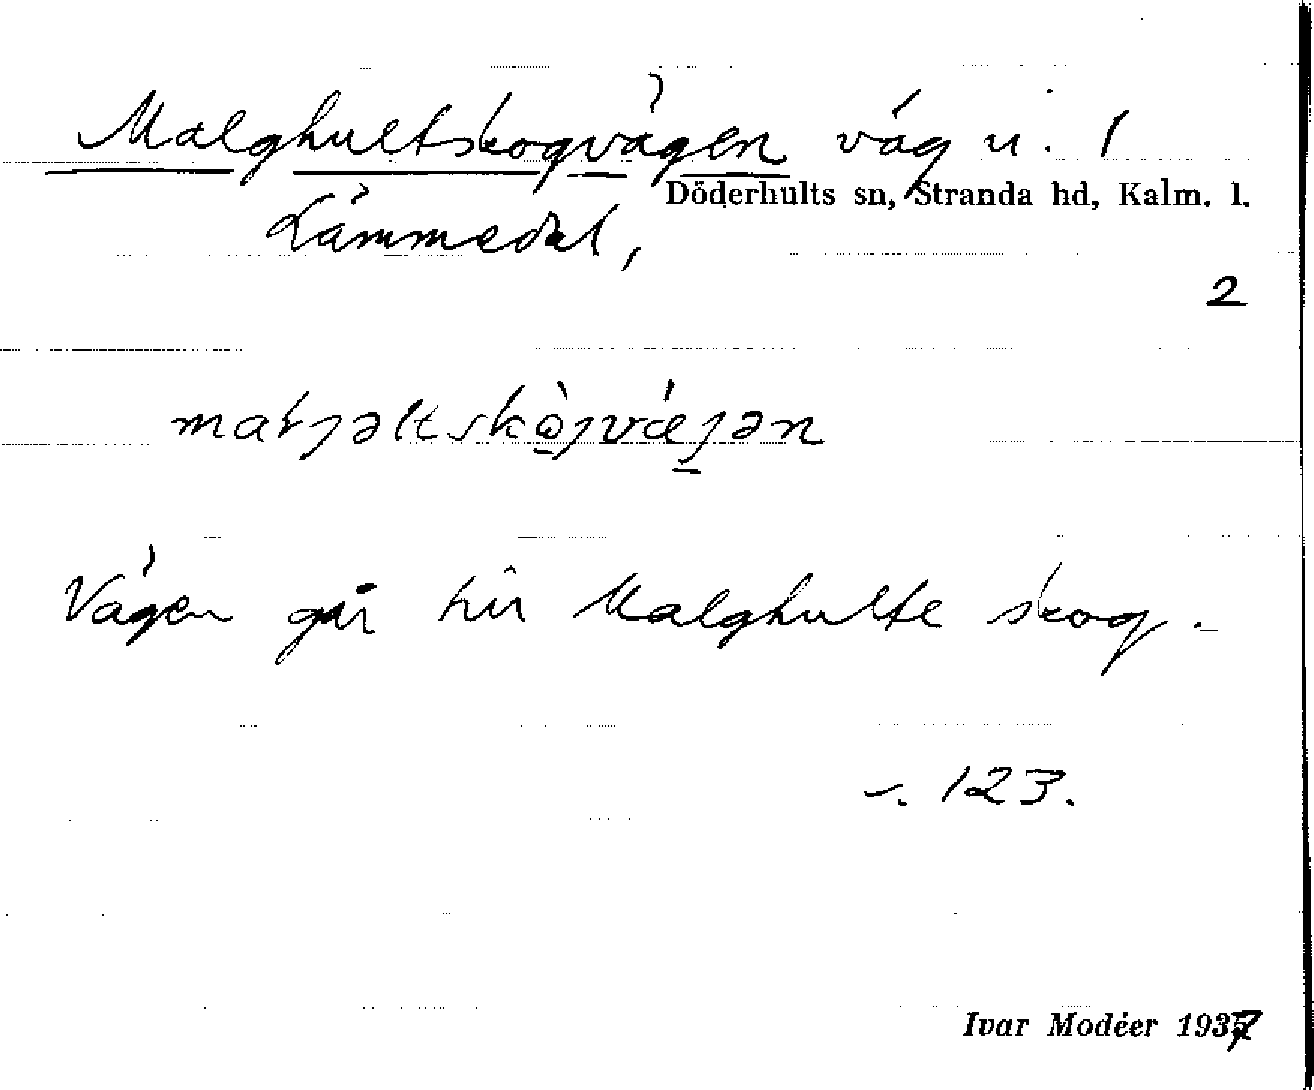 Malghultskogvägen väg u. 1
Döderhults sn, Stranda hd, Kalm. l.
Lämmedal,
2
Vägen går till Malghults skog.
s. 123.
Ivar Modéer 1937